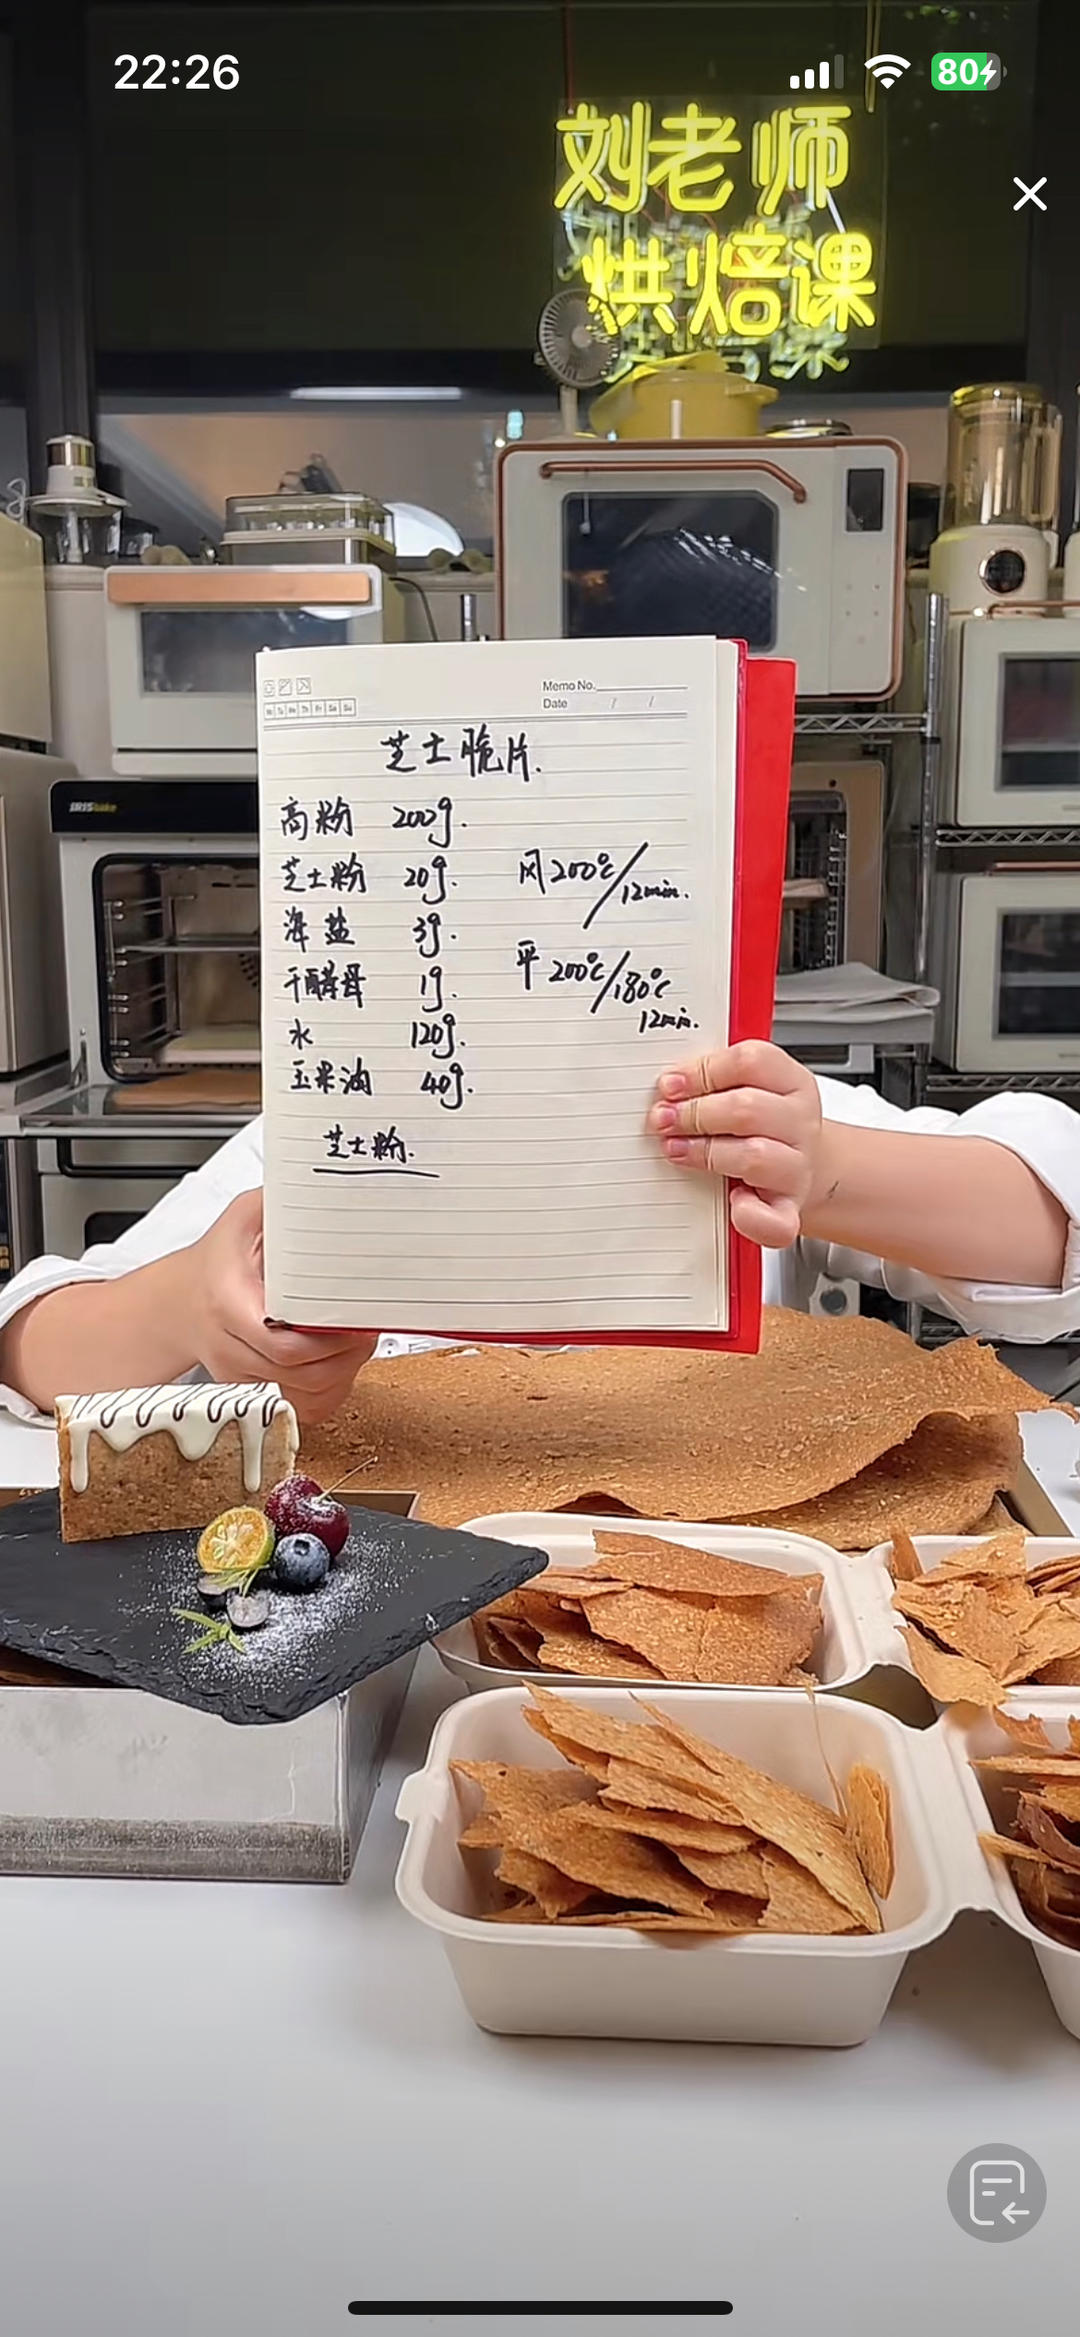 22:26
80
刘老师
烘焙课
IRIS
Mo Tu We Th Fr Sa Su
Memo No.
Date / /
芝士脆片.
高粉 200g.
芝士粉 20g.
海盐 3g.
干酵母 1g.
水 120g.
玉米油 40g.
芝士粉.
风200℃/12min.
平200℃/180℃
12min.